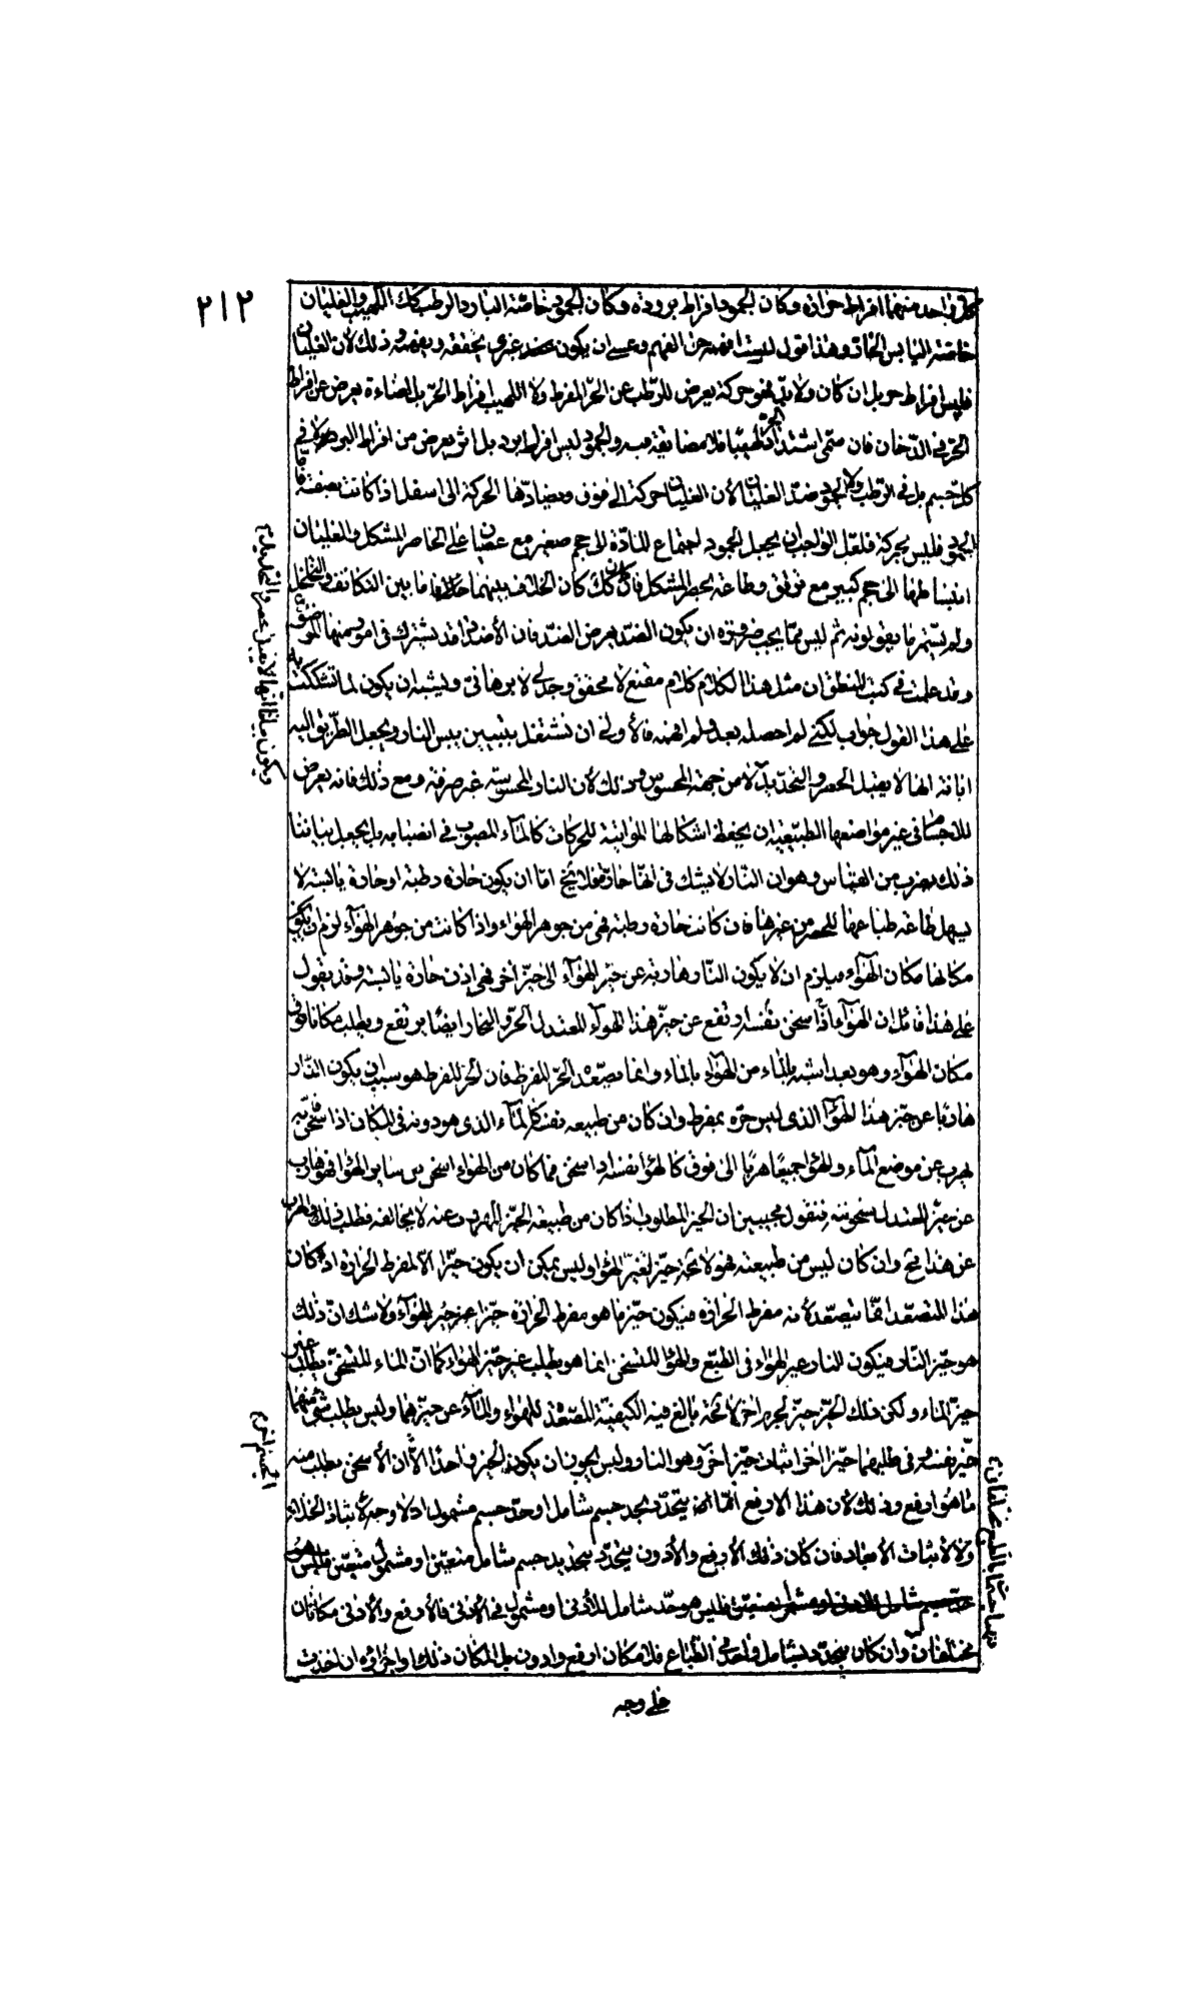 ٢١٢
كل واحد منهما افراط حرارة وكان الجمود افراط برودة وكان الجمود خاصة البارد الرطب كك اللهيب والغليان
خاصة اليابس الحار وهذا قول لست افهمه حق الفهم وعسى ان يكون عند غيرى يحققه ويفهمه وذلك لان الغليان
فليس افراط حر بل ان كان ولابد فهو حركة يعرض للرطب عن الحر المفرط ولا اللهيب افراط الحر بل اضاءة يعرض عن افراط
الحر فى الدخان فان سمى اشتداد الحر لهيبا فلا مضايقة فيه والجمود ليس افراط برد بل اثر يعرض من افراط البرد لا فى
كل جسم بل فى الرطب ولا الجمود ضد الغليان لان الغليان حركة الى فوق ويضادها الحركة الى اسفل اذا كانت بصفة فاما
الجمود فليس بحركة فلعل الواجب ان يجعل الجمود اجتماع المادة الى حجم صغير مع عصيان على الحاصر المشكل والغليان
انبساطها الى حجم كبير مع ترقق وطاعة لحصر المشكل فان كان كك كان الخلاف بينهما خلاف ما بين التكاثف والتخلخل
ولم يستمر ما يقولونه ثم ليس مما يجب ضرورة ان يكون الضد يعرض للضد فان الأضداد قد تشترك فى امور منها الموضوع
وقد علمت فى كتب المنطق ان مثل هذا الكلام كلام مقنع لا محقق وجدلى لا برهانى ويشبه ان يكون لما تشككت به
على هذا القول جواب لكنى لم احصله بعد ولم افهمه فالأولى ان نشتغل بتبيين يبس النار ويجعل الطريق اليه
ابانة انها لا يقبل الحصر والتحديد لا من جهة المحسوس وذلك لأن النار المحسوسة غير صرفة ومع ذلك فانه يعرض
للاجسام فى غير مواضعها الطبيعية ان يحفظ اشكالها المواتية للحركات كالماء المصبوب فى انصبابه بل يجعل بياننا
ذلك بضرب من القياس وهو ان النار لا يشك فى انها حارة فلا يخ اما ان يكون حارة رطبة او حارة يابسة لا
يسهل طاعة طباعها للحصر من غيرها فان كانت حارة رطبة فهى من جوهر الهواء واذا كانت من جوهر الهواء لزم ان يكون
مكانها مكان الهواء فيلزم ان لا يكون النار هاربة عن حيز الهواء الى حيز آخر فهى اذن حارة يابسة وقد يقول
على هذا قائل ان الهواء اذا سخن بنفسه ارتفع عن حيز هذا الهواء المعتدل الحر والبخار ايضا يرتفع ويطلب مكانا فوق
مكان الهواء وهو بعد اشبه بالماء من الهواء بالماء وانما يصعده الحر المفرط فان الحر المفرط هو سبب ان يكون النار
هاربا عن حيز هذا الهواء الذى ليس حره بمفرط وان كان من طبيعه نفسه كالماء الذى هو دونه فى المكان اذا سخن فانه
يهرب عن موضع الماء والهواء جميعا هربا الى فوق كالهواء نفسه اذا سخن فما كان من الهواء اسخن من ساير الهواء فهو هارب
عن حيز المعتدل سخونته فنقول مجيبين ان الحيز المطلوب اذا كان من طبيعة الحيز المهروب عنه لا يخالفه فطلب ذلك والهرب
عن هذا مح وان كان ليس من طبيعته فهو لا محة حيز لغير الهواء وليس يمكن ان يكون حيزا الا لمفرط الحرارة اذ كان
هذا المتصعد انما يتصعد لأنه مفرط الحرارة فيكون حيز ما هو مفرط الحرارة حيزا غير حيز الهواء ولا شك ان ذلك
هو حيز النار فيكون النار غير الهواء فى الطبع والهواء المتسخن انما هو يطلب غير حيز الهواء كما ان الماء المتسخن يطلب غير
حيز الماء ولكن ذلك الحيز حيز لجرم آخر لا محة بالغ فيه الكيفية المصعدة للهواء والماء عن حيزهما وليس يطلب شئ منهما
حيز نفسه وفى طلبهما حيزا آخر اثبات حيز آخر وهو النار وليس يجوز ان يكون الحيز واحدا الا ان الأسخن يطلب منه
ما هو ارفع وذلك لأن هذا الارفع انما يتحدد بحد جسم شامل او حد جسم مشمول اذ لا وجه لأثبات الخلاء
ولا لاثبات الأبعاد فان كان ذلك الأرفع والأدون يتحدد بتحديد جسم شامل متعين او مشمول متعين فليس هو
فليس هو حد شامل للأدنى او مشمول فى الأدنى فالأرفع والأدنى مكانان
مختلفان وان كان يتحدد بشامل واحد فى الطباع فلا مكان ارفع وادون بل المكان ذلك او اجزاؤه ان اخذت
على وجه